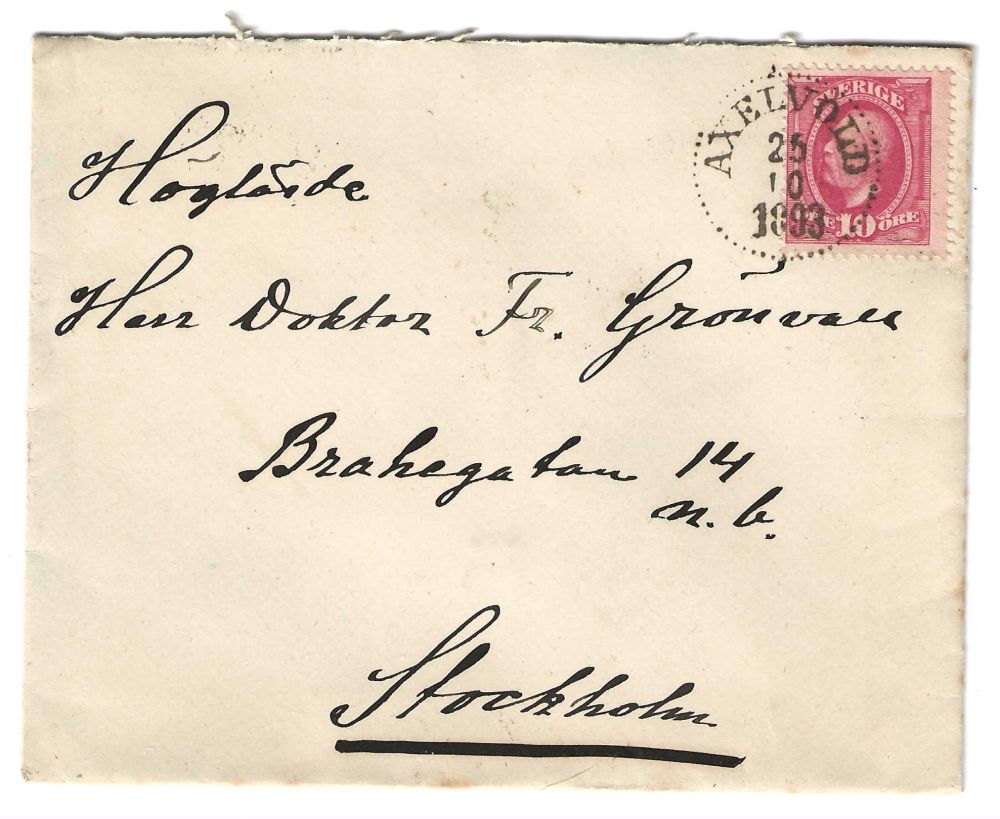 SVERIGE
10 ÖRE
AXELVOLD
25
10
1893
Höglärde
Herr Doktor Fr. Grönvall
Brahegatan 14
n. b.
Stockholm